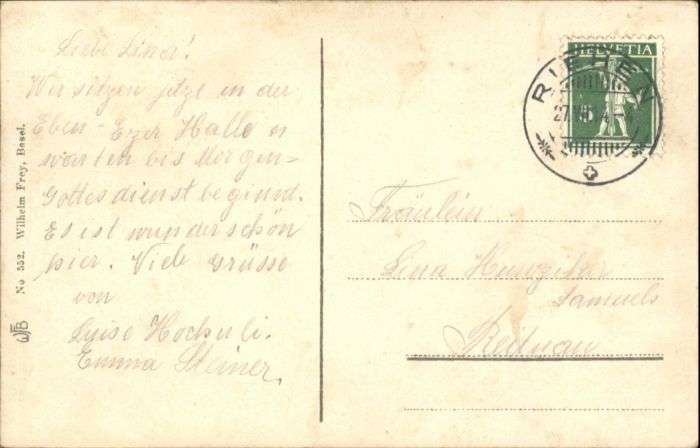 Liebe Lina!
Wir sitzen jetzt in der
Eben-Ezer Halle u
warten bis Morgen=
Gottesdienst beginnd.
Es ist wunderschön
hier. Viele Grüsse
von
Luise Hochuli.
Emma Steiner.
No 552. Wilhelm Frey, Basel.
WFB
HELVETIA
RIEHEN
27.VII
5
Fräulein
Lina Hunziker
Samuels
Reitnau